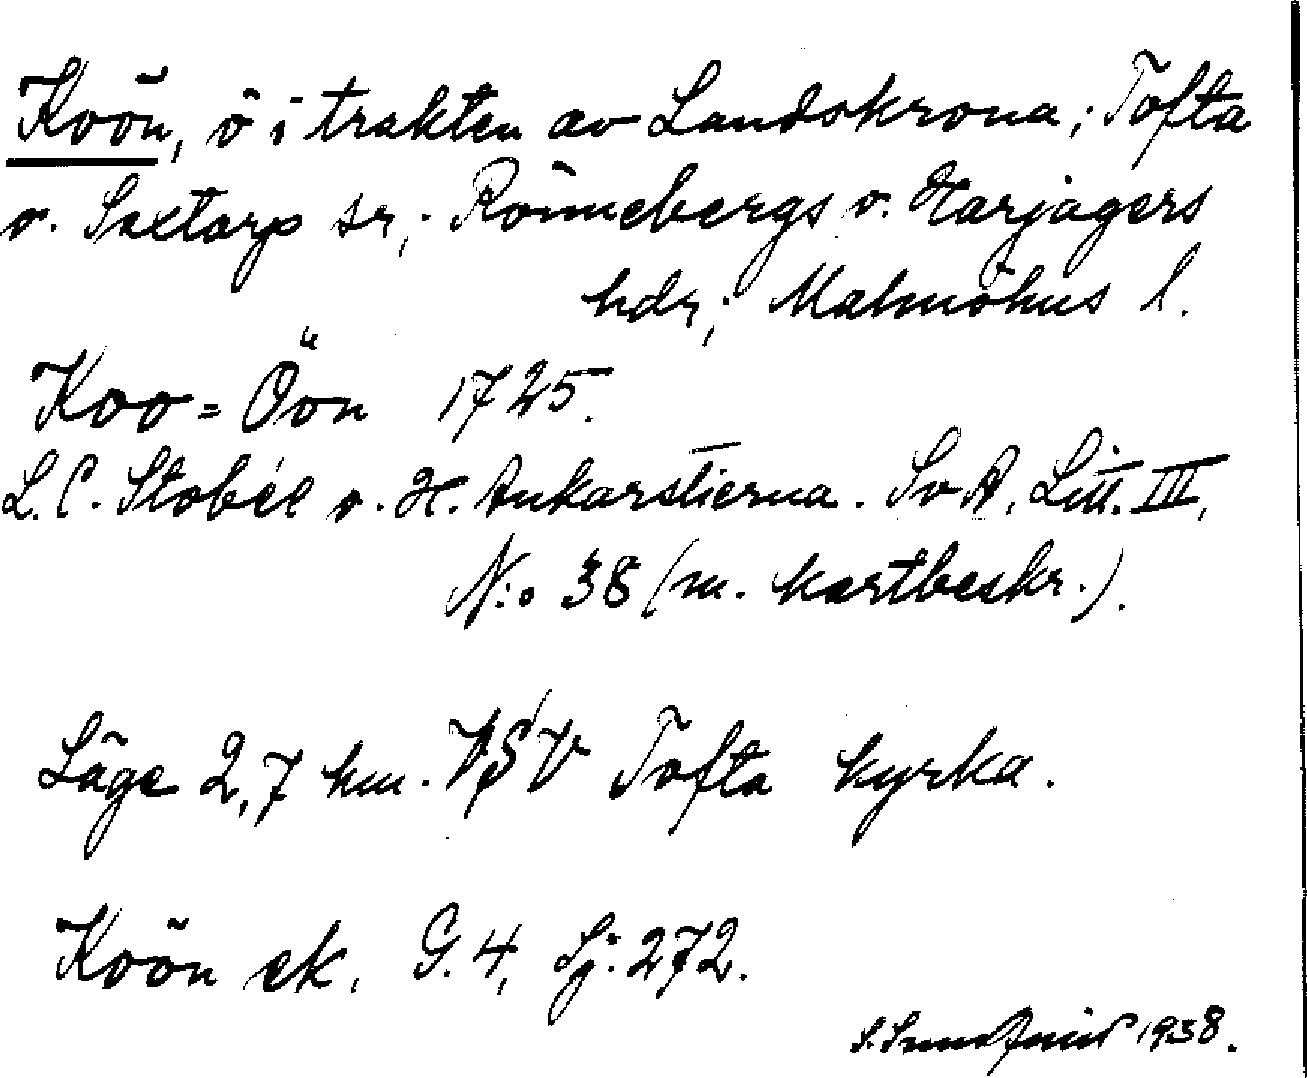 Koön, ö i trakten av Landskrona; Tofta
o. Saxtorp sr; Rönnebergs o. Harjagers
hdr; Malmöhus l.
Koo=Öön 1725.
L. C. Stobée o. H. Ankarstierna. SvA. Litt. III,
N:o 38 (m. kartbeskr.).
Läge 2,7 km. VSV Tofta kyrka.
Koön ek. G. 4, Sj: 272.
S. 1938.